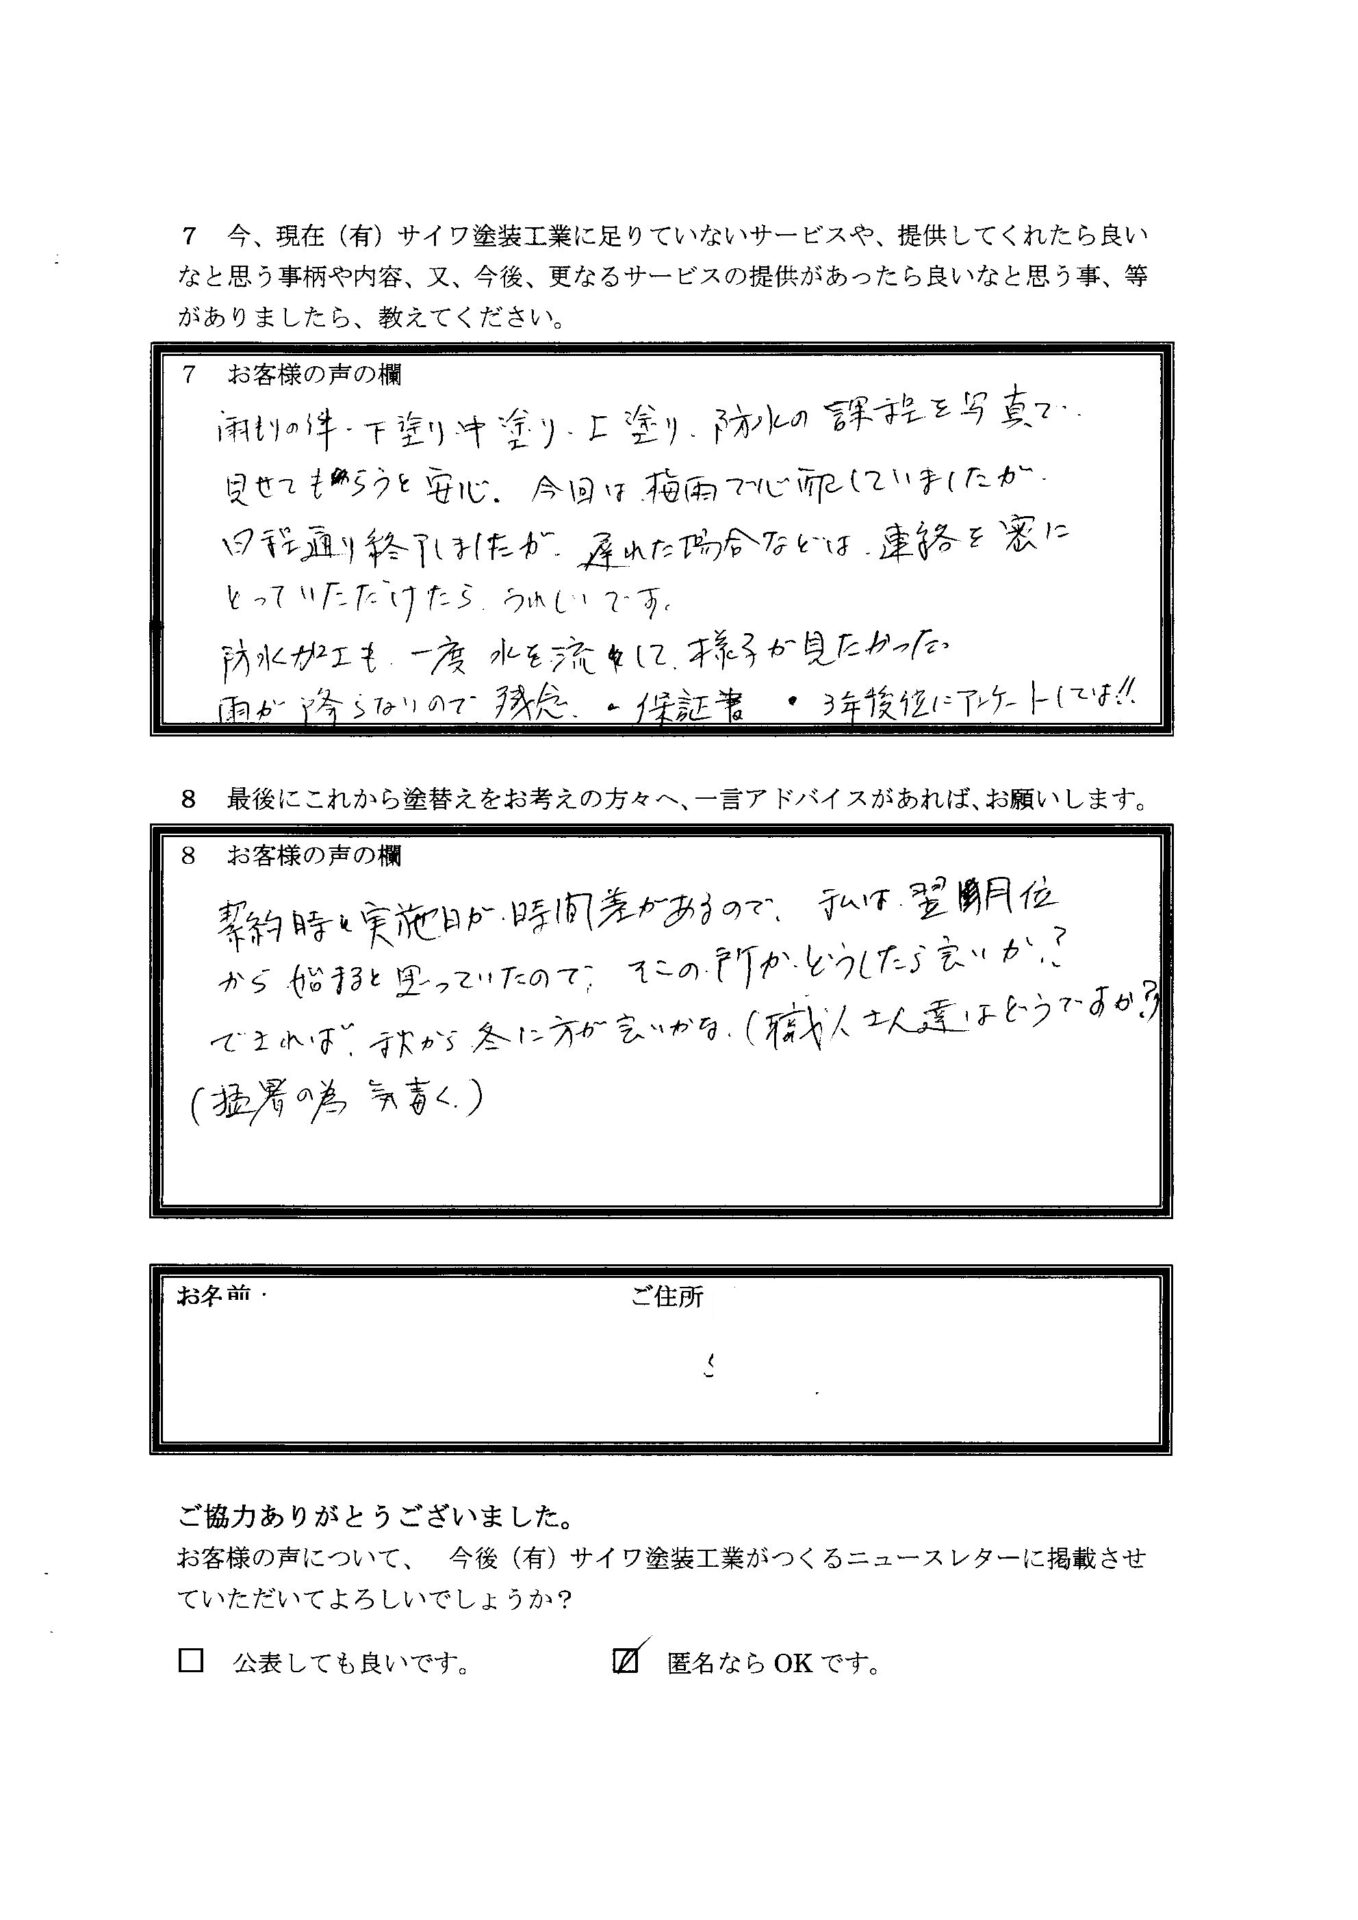 7 今、現在（有）サイワ塗装工業に足りていないサービスや、提供してくれたら良い
なと思う事柄や内容、又、今後、更なるサービスの提供があったら良いなと思う事、等
がありましたら、教えてください。
7 お客様の声の欄
雨もりの件・下塗り・中塗り・上塗り、防水の課程を写真で
見せてもらうと安心。今回は梅雨で心配していましたが
日程通り終了しましたが、遅れた場合などは、連絡を密に
とっていただけたら、うれしいです。
防水加工も、一度水を流して、様子が見たかった。
雨が降らないので残念。・保証書 ・3年後位にアンケートしては!!
8 最後にこれから塗替えをお考えの方々へ、一言アドバイスがあれば、お願いします。
8 お客様の声の欄
契約時と実施日が、時間差があるので、私は、翌月位
から始まると思っていたので、そこの所が、どうしたら良いか?
できれば、秋から冬に方が良いかな。(職人さん達はどうですか?)
(猛暑の為 気毒く。)
お名前
ご住所
ご協力ありがとうございました。
お客様の声について、 今後（有）サイワ塗装工業がつくるニュースレターに掲載させ
ていただいてよろしいでしょうか？
□ 公表しても良いです。 ☑ 匿名なら OK です。